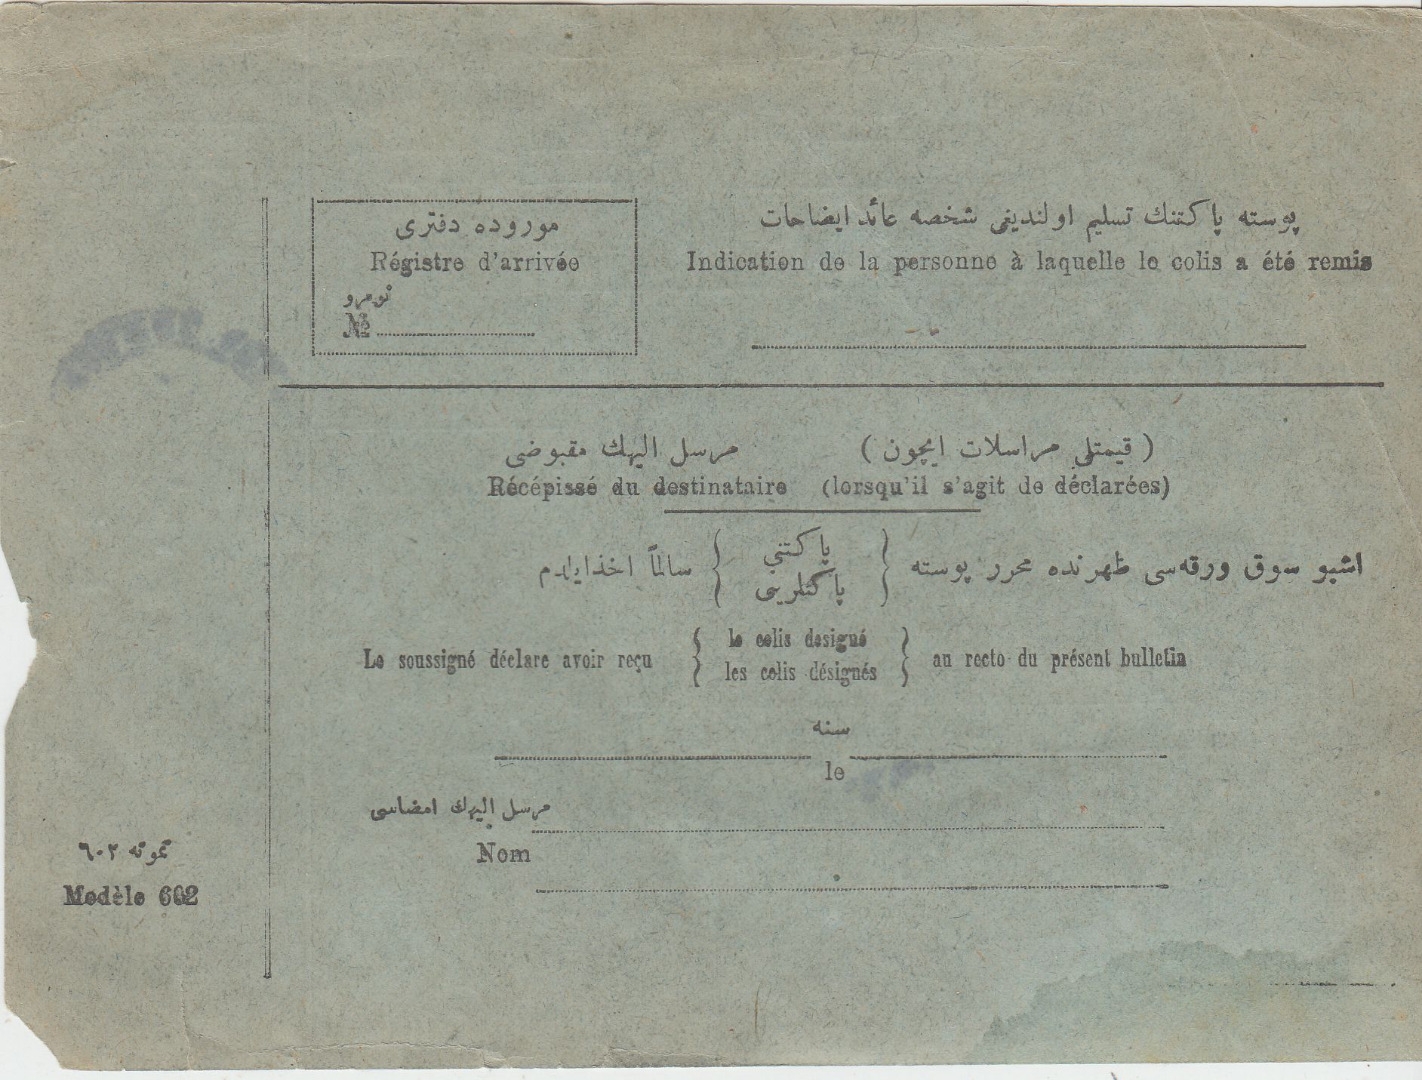 موروده دفترى
Régistre d'arrivée
نومرو
№
پوسته پاكتنك تسليم اولنديغى شخصه عائد ايضاحات
Indication de la personne à laquelle le colis a été remis
مرسل اليهك مقبوضى (قيمتلى مراسلات ايچون)
Récépissé du destinataire (lorsqu'il s'agit de déclarées)
اشبو سوق ورقه‌سى ظهرنده محرر پوسته { پاكتنى
پاكتلرينى } سالماً اخذ ايلدم
Le soussigné déclare avoir reçu { le colis designé
les colis désignés } au recto du présent bulletin
سنه
le
مرسل اليهك امضاسى
Nom
نمونه ٦٠٢
Modèle 602